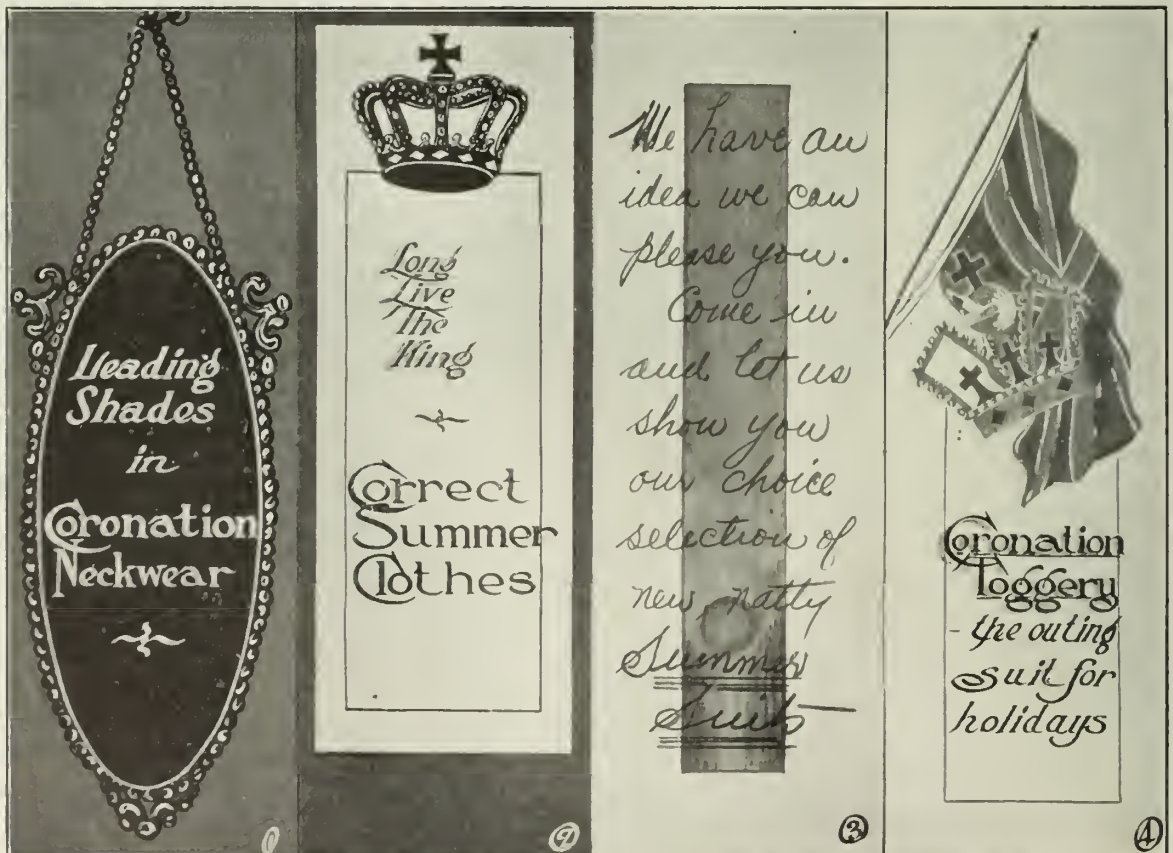 Leading
Shades
in
Coronation
Neckwear
1
Long
Live
The
King
Correct
Summer
Clothes
2
We have an
idea we can
please you.
Come in
and let us
show you
our choice
selection of
new, natty
Summer
Suits
3
Coronation
Toggery
- the outing
suit for
holidays
4